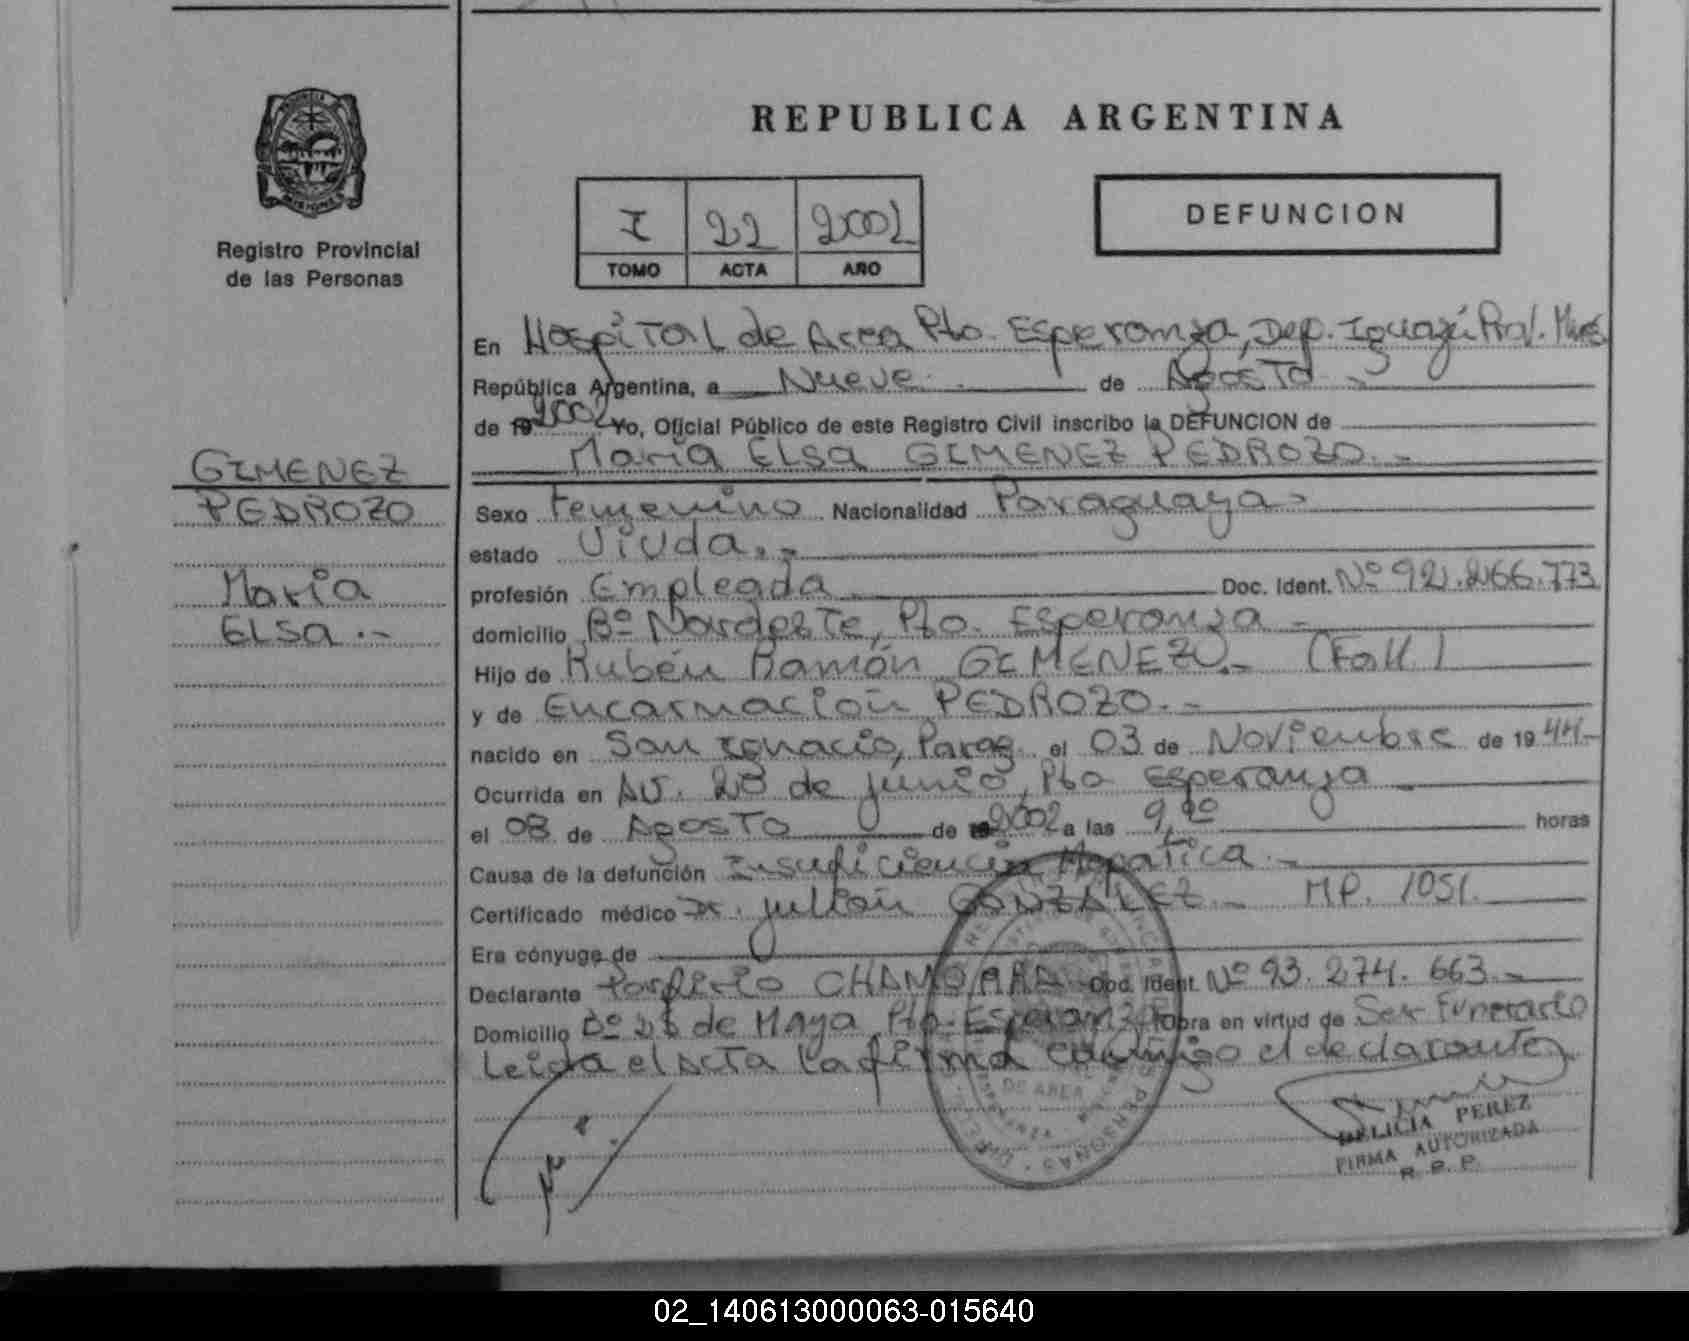 REPUBLICA ARGENTINA
PROVINCIA DE
MISIONES
Registro Provincial
de las Personas
I 22 2002
TOMO ACTA AÑO
DEFUNCION
En Hospital de Area Pto. Esperanza, Dep. Iguazú Prov. Mnes
República Argentina, a Nueve de Agosto
de 19 2002 Yo, Oficial Público de este Registro Civil inscribo la DEFUNCION de
Maria Elsa GIMENEZ PEDROZO.-
GIMENEZ
PEDROZO
Maria
ELSA.-
Sexo Femenino Nacionalidad Paraguaya-
estado Viuda.-
profesión Empleada Doc. Ident. Nº 92.266.773
domicilio Bº Nordeste, Pto. Esperanza-
Hijo de Rubén Ramón GIMENEZ.- (Fall)
y de Encarnación PEDROZO.-
nacido en San Ignacio, Parag. el 03 de Noviembre de 19 44.-
Ocurrida en AV. 28 de junio, Pto Esperanza
el 08 de Agosto de 2002 a las 9, horas
Causa de la defunción Insuficiencia Hepatica.-
Certificado médico Dr. julián GONZALEZ.- MP. 1051.
Era cónyuge de
Declarante Porfirio CHAMORRO Doc. Ident. Nº 93.274.663.-
Domicilio Bº 25 de Mayo Pto. Esperanza Obra en virtud de Ser Funerario
Leida el acta la firma conmigo el declarante
DE AREA
DELICIA PEREZ
FIRMA AUTORIZADA
R. P. P.
02_140613000063-015640